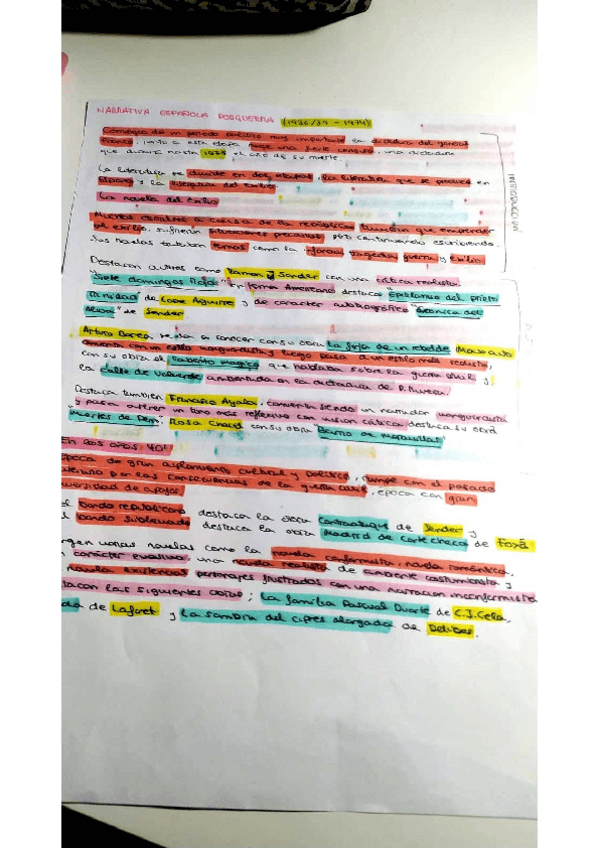 NARRATIVA ESPAÑOLA POSGUERRA (1936/39 - 1974)
Comienza de un periodo político muy importante la dictadura del general
Franco, junto a esta etapa surge una fuerte censura, una dictadura
que durará hasta 1975 el año de su muerte.
INTRODUCCIÓN
La literatura se divide en dos etapas, la literatura que se produce en
España y la literatura del exilio.
La novela del Exilio
Muchos escritores a causa de la república tuvieron que emprender
el exilio, sufrieron situaciones precarias, pero continuaron escribiendo.
Sus novelas tratan temas como la infancia, tragedia, guerra y Exilio.
Destacan autores como Ramon J Sender con una crítica realista
"Siete domingos Rojos" en toma Americano destaca "Epitalamio del prieto
Trinidad" de Lope Aguirre y de carácter autobiográfico "Crónica del
Alba" de Sender.
Arturo Barea se da a conocer con su obra La forja de un rebelde, Max Aub
comenta con un estilo vanguardista y luego pasa a un estilo más realista,
con su obra el laberinto mágico que hablaba sobre la guerra civil y
la calle de Valverde ambientada en la dictadura de P. Rivera.
Destaca tambien Francisco Ayala, comienza siendo un narrador vanguardista
y pasa a tener un tono más reflexivo con visión crítica destaca su obra
"Muertes de Perro". Rosa Chacel con su obra "Barrio de Maravillas".
En los años 40!
época de gran aislamiento cultural y político, rompe con el pasado
literario por las consecuencias de la guerra civil, época con gran
diversidad de apoyos.
bando republicano destaca la obra Contraataque de Sender y
bando sublevado destaca la obra Madrid de Corte a checa de Foxá.
surgen varias novelas como la novela conformista, novela romántica,
carácter evasivo, una novela realista de ambiente costumbrista y
novela existencial personajes frustrados con una narracion inconformista
destacan las siguientes obras; La familia Pascual Duarte de C.J. Cela,
de Laforet y La sombra del cipres alargada de Delibes.